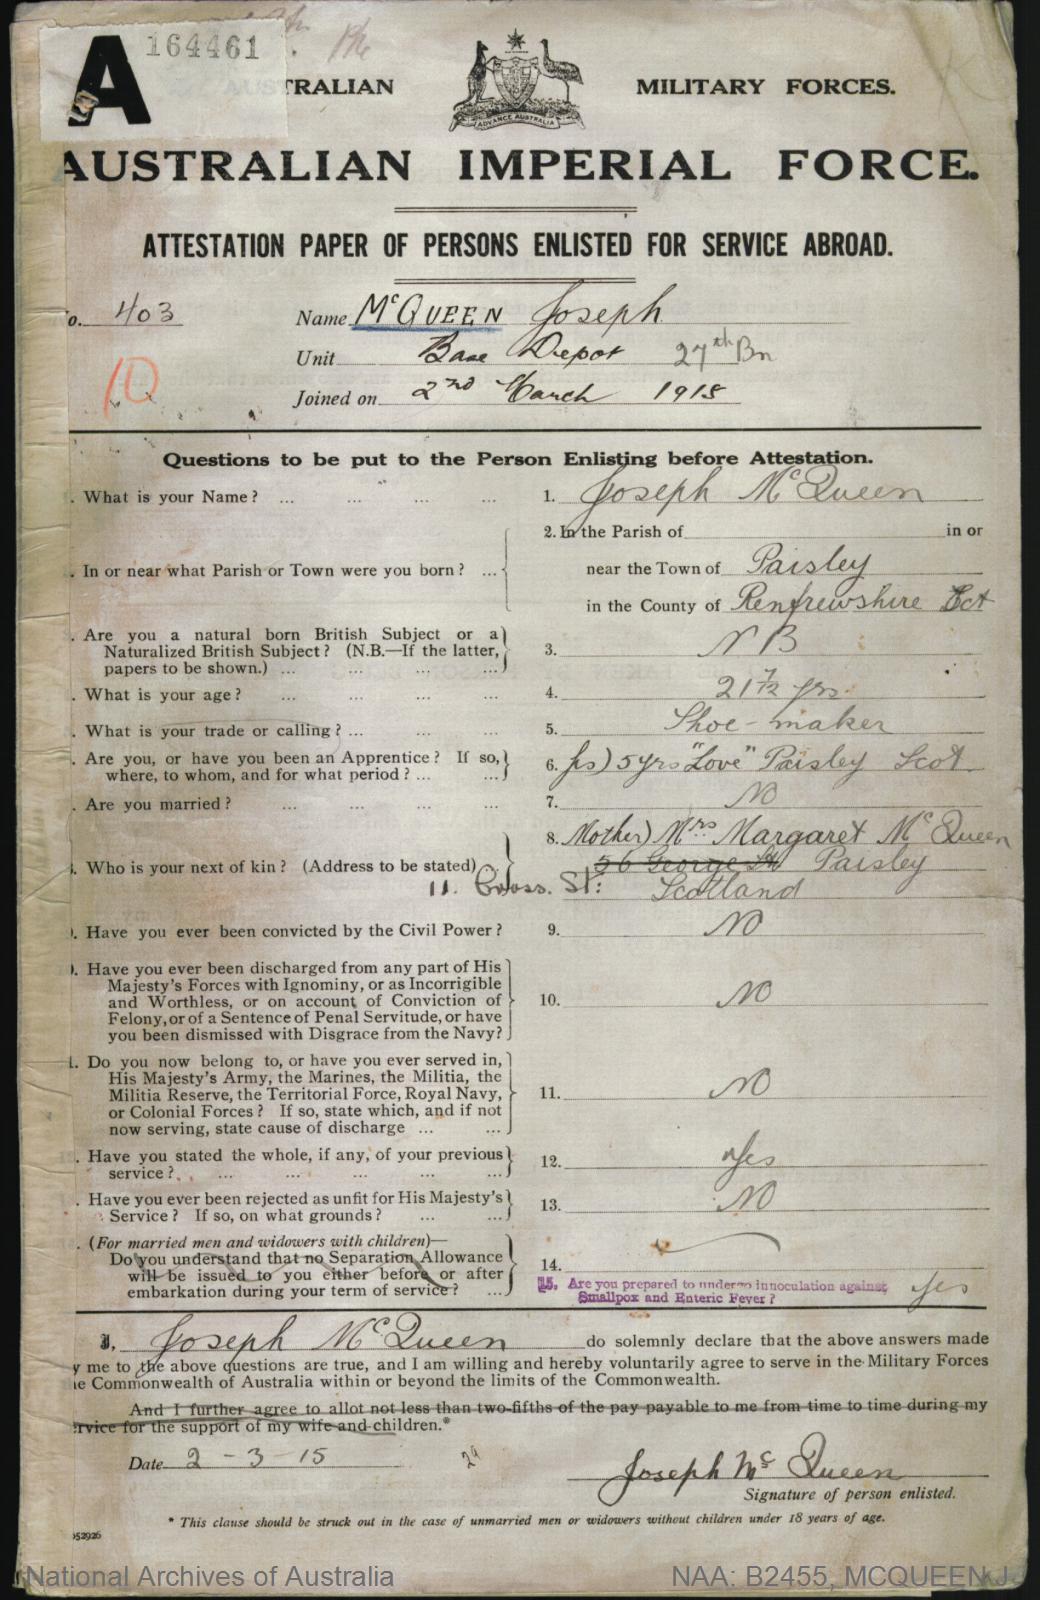 A 164461
AUSTRALIAN MILITARY FORCES.
ADVANCE AUSTRALIA
AUSTRALIAN IMPERIAL FORCE.
ATTESTATION PAPER OF PERSONS ENLISTED FOR SERVICE ABROAD.
o. 403 Name McQUEEN Joseph
Unit Base Depot 27th Bn
10
Joined on 2nd March 1915
Questions to be put to the Person Enlisting before Attestation.
. What is your Name? ... ... ... ... 1. Joseph McQueen
2. In the Parish of in or
. In or near what Parish or Town were you born? ... near the Town of Paisley
in the County of Renfrewshire Sct
. Are you a natural born British Subject or a
Naturalized British Subject? (N.B.—If the latter, 3. NB
papers to be shown.) ... ... ... ...
. What is your age? ... ... ... ... 4. 21 7/12 yrs.
. What is your trade or calling? ... ... ... 5. Shoe-maker
. Are you, or have you been an Apprentice? If so,
where, to whom, and for what period? ... ... 6. 5 yrs "Love" Paisley Scot
. Are you married? ... ... ... ... 7. NO
8. Mother) Mrs Margaret McQueen
. Who is your next of kin? (Address to be stated) 56 George St Paisley
11. Cross. St: Scotland
). Have you ever been convicted by the Civil Power? 9. NO
). Have you ever been discharged from any part of His
Majesty's Forces with Ignominy, or as Incorrigible
and Worthless, or on account of Conviction of 10. NO
Felony, or of a Sentence of Penal Servitude, or have
you been dismissed with Disgrace from the Navy?
. Do you now belong to, or have you ever served in,
His Majesty's Army, the Marines, the Militia, the
Militia Reserve, the Territorial Force, Royal Navy, 11. NO
or Colonial Forces? If so, state which, and if not
now serving, state cause of discharge ... ...
. Have you stated the whole, if any, of your previous 12. Yes
service? ... ... ... ... ...
. Have you ever been rejected as unfit for His Majesty's 13. NO
Service? If so, on what grounds? ... ...
. (For married men and widowers with children)—
Do you understand that no Separation Allowance 14.
will be issued to you either before or after
embarkation during your term of service? ...
15. Are you prepared to undergo innoculation against Yes
Smallpox and Enteric Fever?
I, Joseph McQueen do solemnly declare that the above answers made
y me to the above questions are true, and I am willing and hereby voluntarily agree to serve in the Military Forces
e Commonwealth of Australia within or beyond the limits of the Commonwealth.
And I further agree to allot not less than two-fifths of the pay payable to me from time to time during my
ervice for the support of my wife and children.*
Date 2-3-15
Joseph McQueen
Signature of person enlisted.
* This clause should be struck out in the case of unmarried men or widowers without children under 18 years of age.
52926
National Archives of Australia NAA: B2455, MCQUEEN J